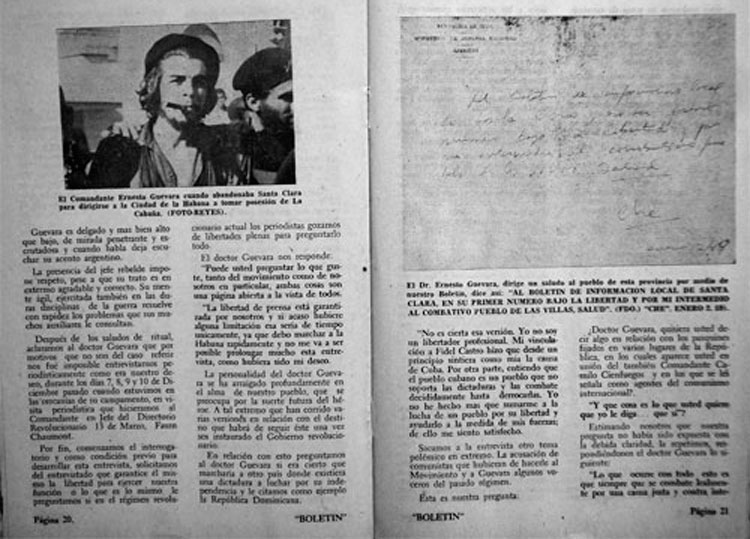 El Comandante Ernesto Guevara cuando abandonaba Santa Clara
para dirigirse a la Ciudad de la Habana a tomar posesión de La
Cabaña. (FOTO-REYES).
Guevara es delgado y mas bien alto
que bajo, de mirada penetrante y es-
crutadora y cuando habla deja escu-
char su acento argentino.
La presencia del jefe rebelde impo-
ne respeto, pese a que su trato es en
extremo agradable y correcto. Su men-
te ágil, ejercitada también en las du-
ras disciplinas de la guerra resuelve
con rapidez los problemas que sus mu-
chos auxiliares le consultan.
Después de los saludos de ritual,
aclaramos al doctor Guevara que por
motivos que no son del caso referir
nos fué imposible entrevistarnos pe-
riodísticamente como era nuestro de-
seo, durante los días 7, 8, 9 y 10 de Di-
ciembre pasado cuando estuvimos en
las cercanías de su campamento, en vi-
sita periodística que hiciéramos al
Comandante en Jefe del Directorio
Revolucionario 13 de Marzo, Faure
Chaumont.
Por fin, comenzamos el interroga-
torio y como condición previo para
desarrollar esta entrevista, solicitamos
del entrevistado que garantice el mis-
mo la libertad para ejercer nuestra
función o lo que es lo mismo le
preguntamos si en el régimen revolu-
Página 20.
"BOLETIN"
cionario actual los periodistas gozamos
de libertades plenas para preguntarlo
todo.
El doctor Guevara nos responde:
"Puede usted preguntar lo que gus-
te, tanto del movimiento como de no-
sotros en particular, ambas cosas son
una página abierta a la vista de todos.
"La libertad de prensa está garanti-
zada por nosotros y si acaso hubiere
alguna limitación esa sería de tiempo
unicamente, ya que debo marchar a la
Habana rapidamente y no me va a ser
posible prolongar mucho esta entre-
vista, como hubiera sido mi deseo.
La personalidad del doctor Gueva-
ra se ha arraigado profundamente en
el alma de nuestro pueblo, que se
preocupa por la suerte futura del hé-
roe. A tal extremo que han corrido va-
rias versiones en relación con el desti-
no que habrá de seguir éste una vez
ses instaurado el Gobierno revolucio-
nario.
En relación con esto preguntamos
al doctor Guevara si era cierto que
marcharía a otro país donde existiera
una dictadura a luchar por su inde-
pendencia y le citamos como ejemplo
la República Dominicana.
MINISTERIO DE DEFENSA NACIONAL
EJERCITO
Che
El Dr. Ernesto Guevara, dirige un saludo al pueblo de esta provincia por medio de
nuestro Boletín, dice así: "AL BOLETIN DE INFORMACION LOCAL DE SANTA
CLARA, EN SU PRIMER NUMERO BAJO LA LIBERTAD Y POR MI INTERMEDIO
AL COMBATIVO PUEBLO DE LAS VILLAS, SALUD". (FDO.) "CHE". ENERO 2,
"No es cierta esa versión. Yo no soy
un libertador profesional. Mi vincula-
ción a Fidel Castro hizo que desde un
principio sintiera como mia la causa
de Cuba. Por otra parte, entiendo que
el pueblo cubano es un pueblo que no
soporta las dictaduras y las combate
decididamente hasta derrocarlas. Yo
no he hecho mas que sumarme a la
lucha de un pueblo por su libertad y
ayudarlo a la medida de sus fuerzas;
de ello me siento satisfecho.
Sacamos a la entrevista otro tema
polémico en extremo. La acusación de
comunistas que hubieran de hacerle al
Movimiento y a Guevara algunos vo-
ceros del pasado régimen.
Esta es nuestra pregunta:
"BOLETIN"
¿Doctor Guevara, quisiera usted de-
cir algo en relación con los pasquines
fijados en varios lugares de la Repú-
blica, en los cuales aparece usted en
unión del también Comandante Ca-
milo Cienfuegos y en las que se les
señala como agentes del comunismo
internacional?.
"Y que cosa es lo que usted quiere
que yo le diga... que sí"?
Estimando nosotros que nuestra
pregunta no había sido expuesta con
la debida claridad, la repetimos, res-
pondiéndonos el doctor Guevara lo si-
guiente:
"Lo que ocurre con todo esto es
que siempre que se combate lealmen-
te por una causa justa y contra inte-
Página 21